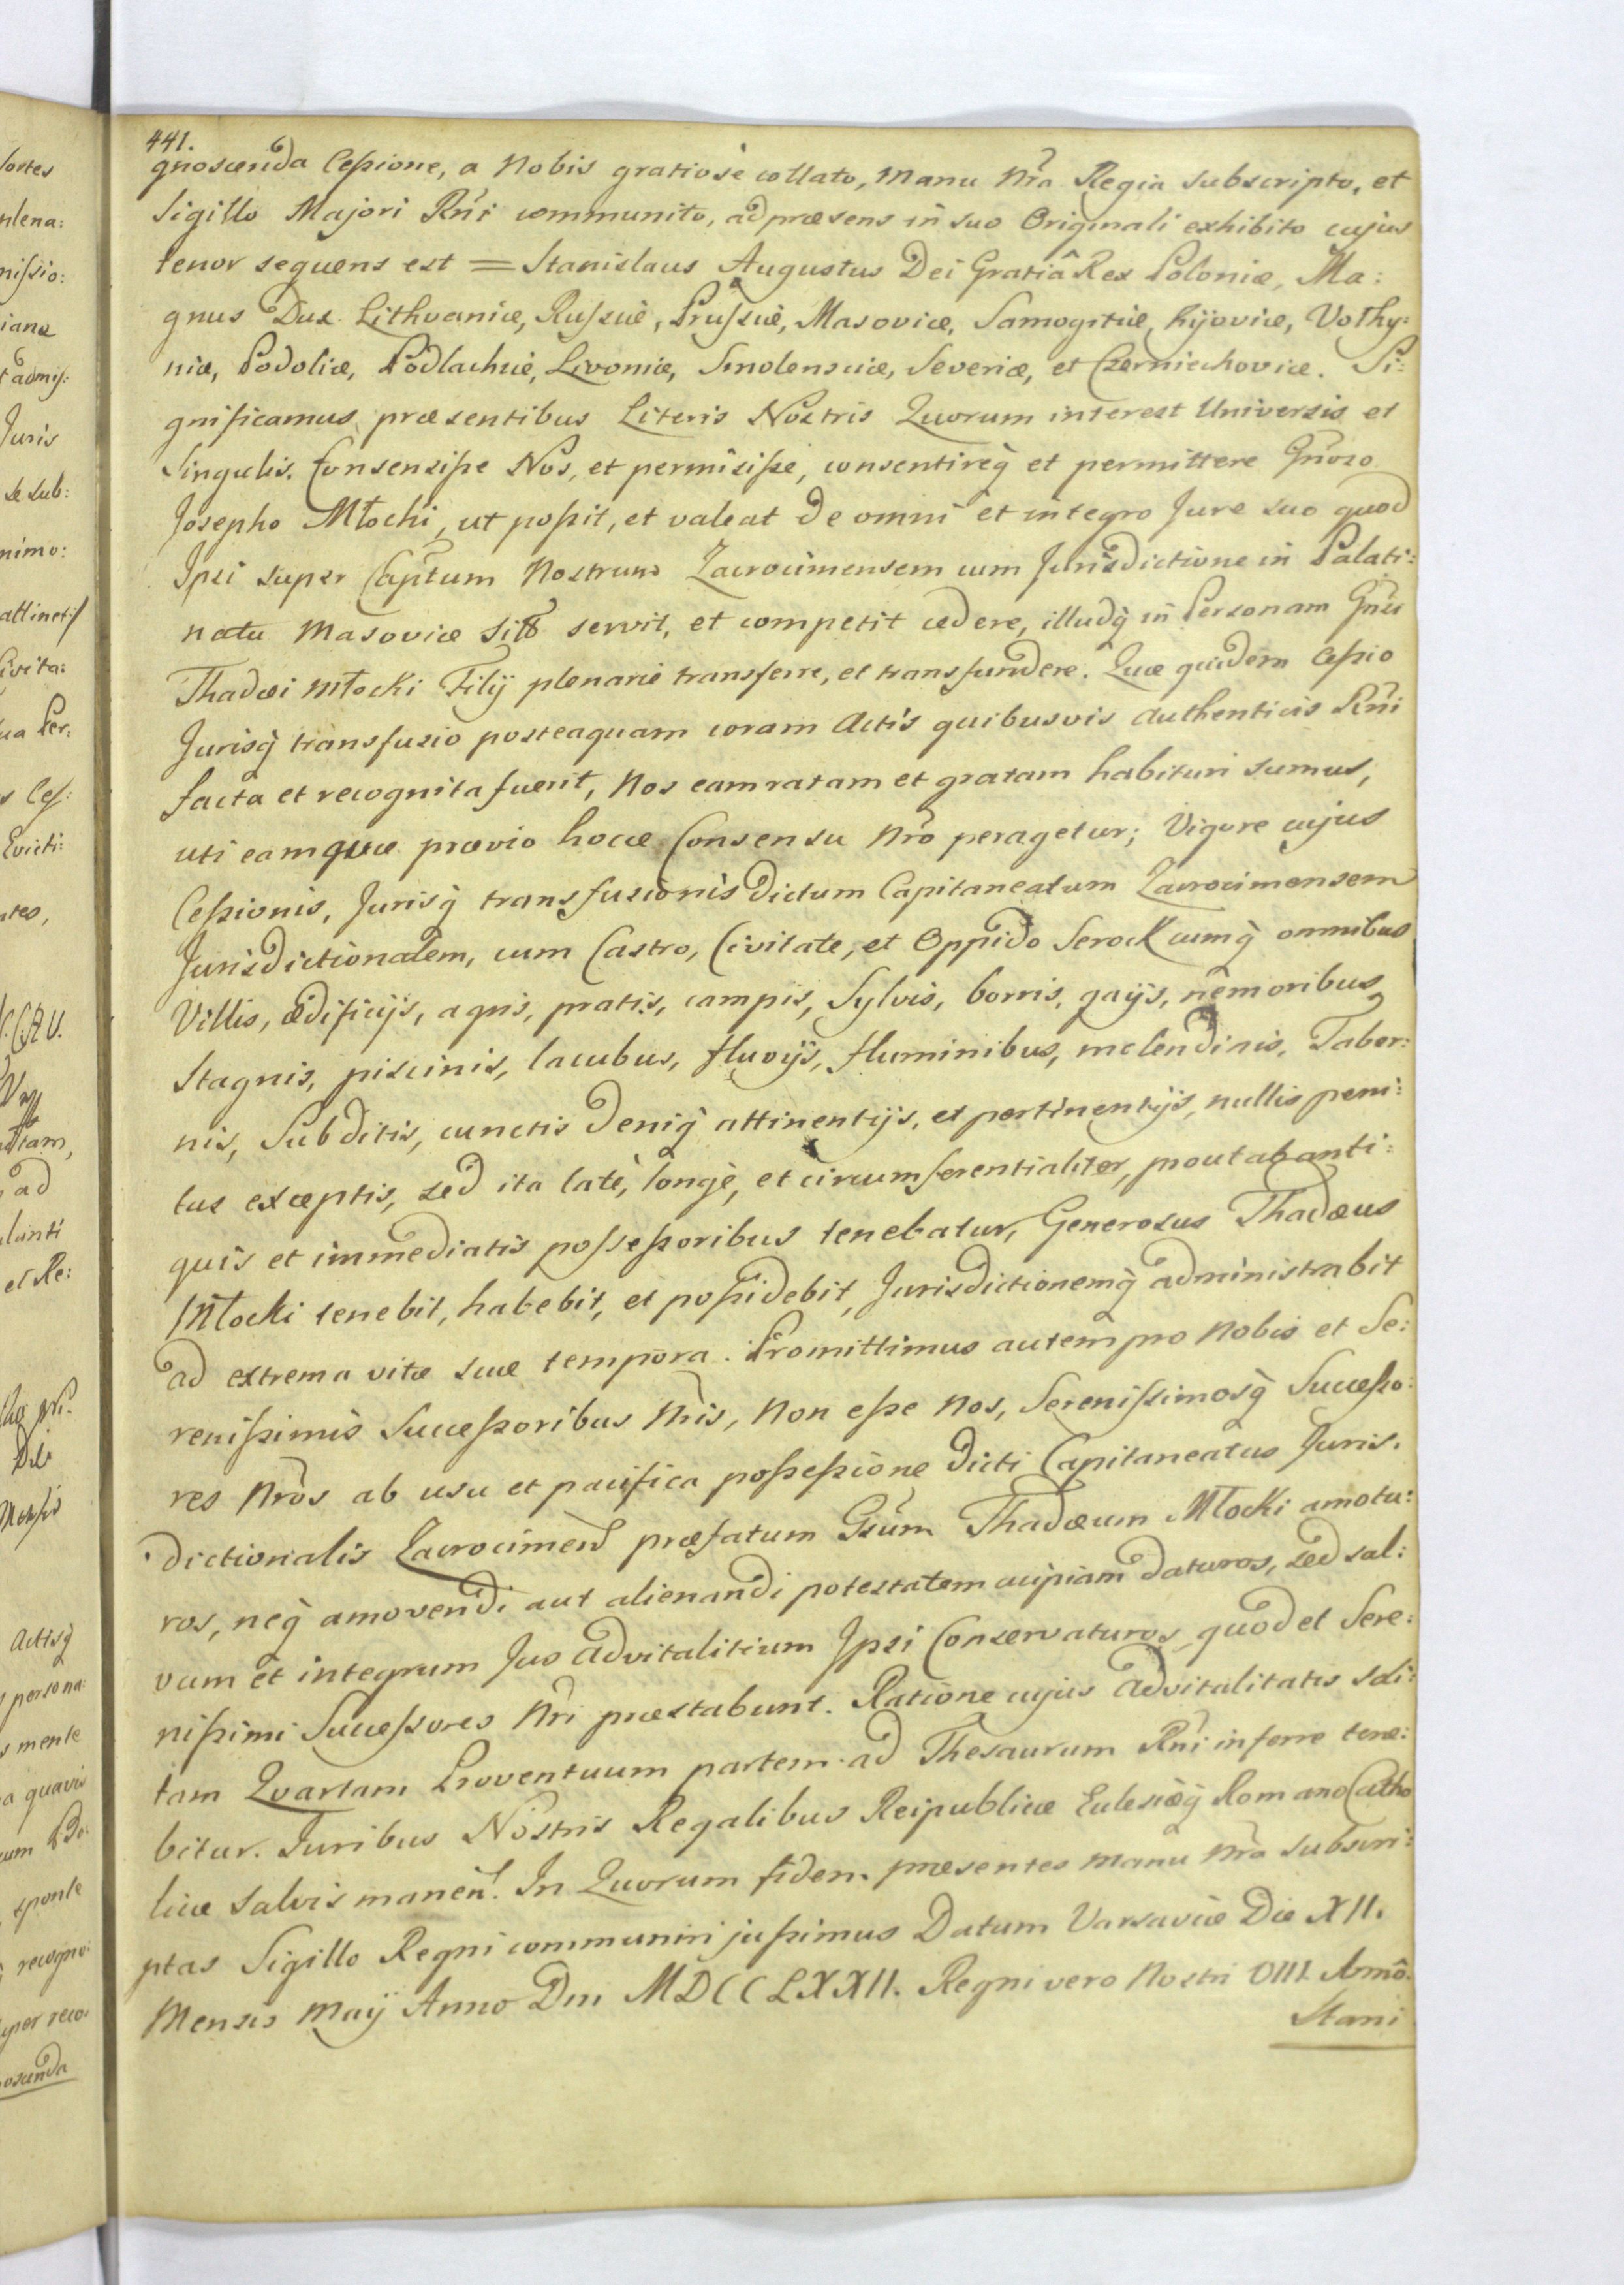 441.
gnoscenda Cessione, a Nobis gratiosè collato, Manu Nra Regia subscripto, et
Sigillo Majori Rni communito, ad præsens in suo Originali exhibito cujus
tenor sequens est = Stanislaus Augustus Dei Gratiâ Rex Poloniæ, Ma:
gnus Dux Lithvaniæ, Russiæ, Prussiæ, Masoviæ, Samogitiæ, Kijoviæ, Volhy:
niæ, Podoliæ, Podlachiæ, Livoniæ, Smolensciæ, Severiæ, et Czerniechoviæ. Si:
gnificamus præsentibus Literis Nostris Quorum interest Universis et
Singulis. Consensisse Nos, et permisisse, consentireq et permittere Gnoso
Josepho Młocki, ut possit, et valeat de omni et integro Jure suo quod
Ipsi super Captum Nostrum Zacrocimensem cum Jurisdictione in Palati:
natu Masoviæ sito servit, et competit cedere, illudq in Personam Gnsi
Thadæi Młocki Filij plenariè transferre, et transfundere. Quæ quidem Cessio
Jurisq transfusio posteaquam coram Actis quibusvis authenticis Rni
facta et recognita fuerit, Nos eam ratam et gratam habituri sumus,
uti eamquæ prævio hocce Consensu Nro peragetur; Vigore cujus
Cessionis, Jurisq transfusionis dictum Capitaneatum Zacrocimensem
Jurisdictionalem, cum Castro, Civitate, et Oppido Serock cumq omnibus
Villis, ædificijs, agris, pratis, campis, Sylvis, borris, gajis, nemoribus,
Stagnis, piscinis, lacubus, fluvijs, fluminibus, melendinis, Taber:
nis, Subditis, cunctis deniq attinentijs, et pertinentijs, nullis peni:
tus exceptis, sed ita latè, longè, et circumferentialiter, prout ab anti:
quis et immediatis possessoribus tenebatur, Generosus Thadæus
Młocki tenebit, habebit, et possidebit, Jurisdictionemq administrabit
ad extrema vitæ suæ tempora. Promittimus autem pro Nobis et Se:
renissimis Successoribus Nris, Non esse Nos, Serenissimosq Successo:
res Nros ab usu et pacifica possessione dicti Capitaneatus Juris.
dictionalis Zacrocimen præfatum Gsum Thadæum Młocki amotu:
ros, neq amovendi aut alienandi potestatem cuipiam daturos, sed sal:
vum et integrum Jus advitalitium Ipsi Conservaturos, quod et Sere:
nissimi Successores Nri præstabunt. Ratione cujus advitalitatis soli:
tam Qvartam Proventuum partem ad Thesaurum Rni inferre tene:
bitur. Juribus Nostris Regalibus Reipublicæ Eclesiæq Romano Catho
licæ salvis manen. In Quorum fidem præsentes manu Nra subscri:
ptas Sigillo Regni communiri jussimus Datum Varsaviæ Die XII.
Mensis Maij Anno Dni MDCCLXXII. Regni vero Nostri VIII Anno.
Stani